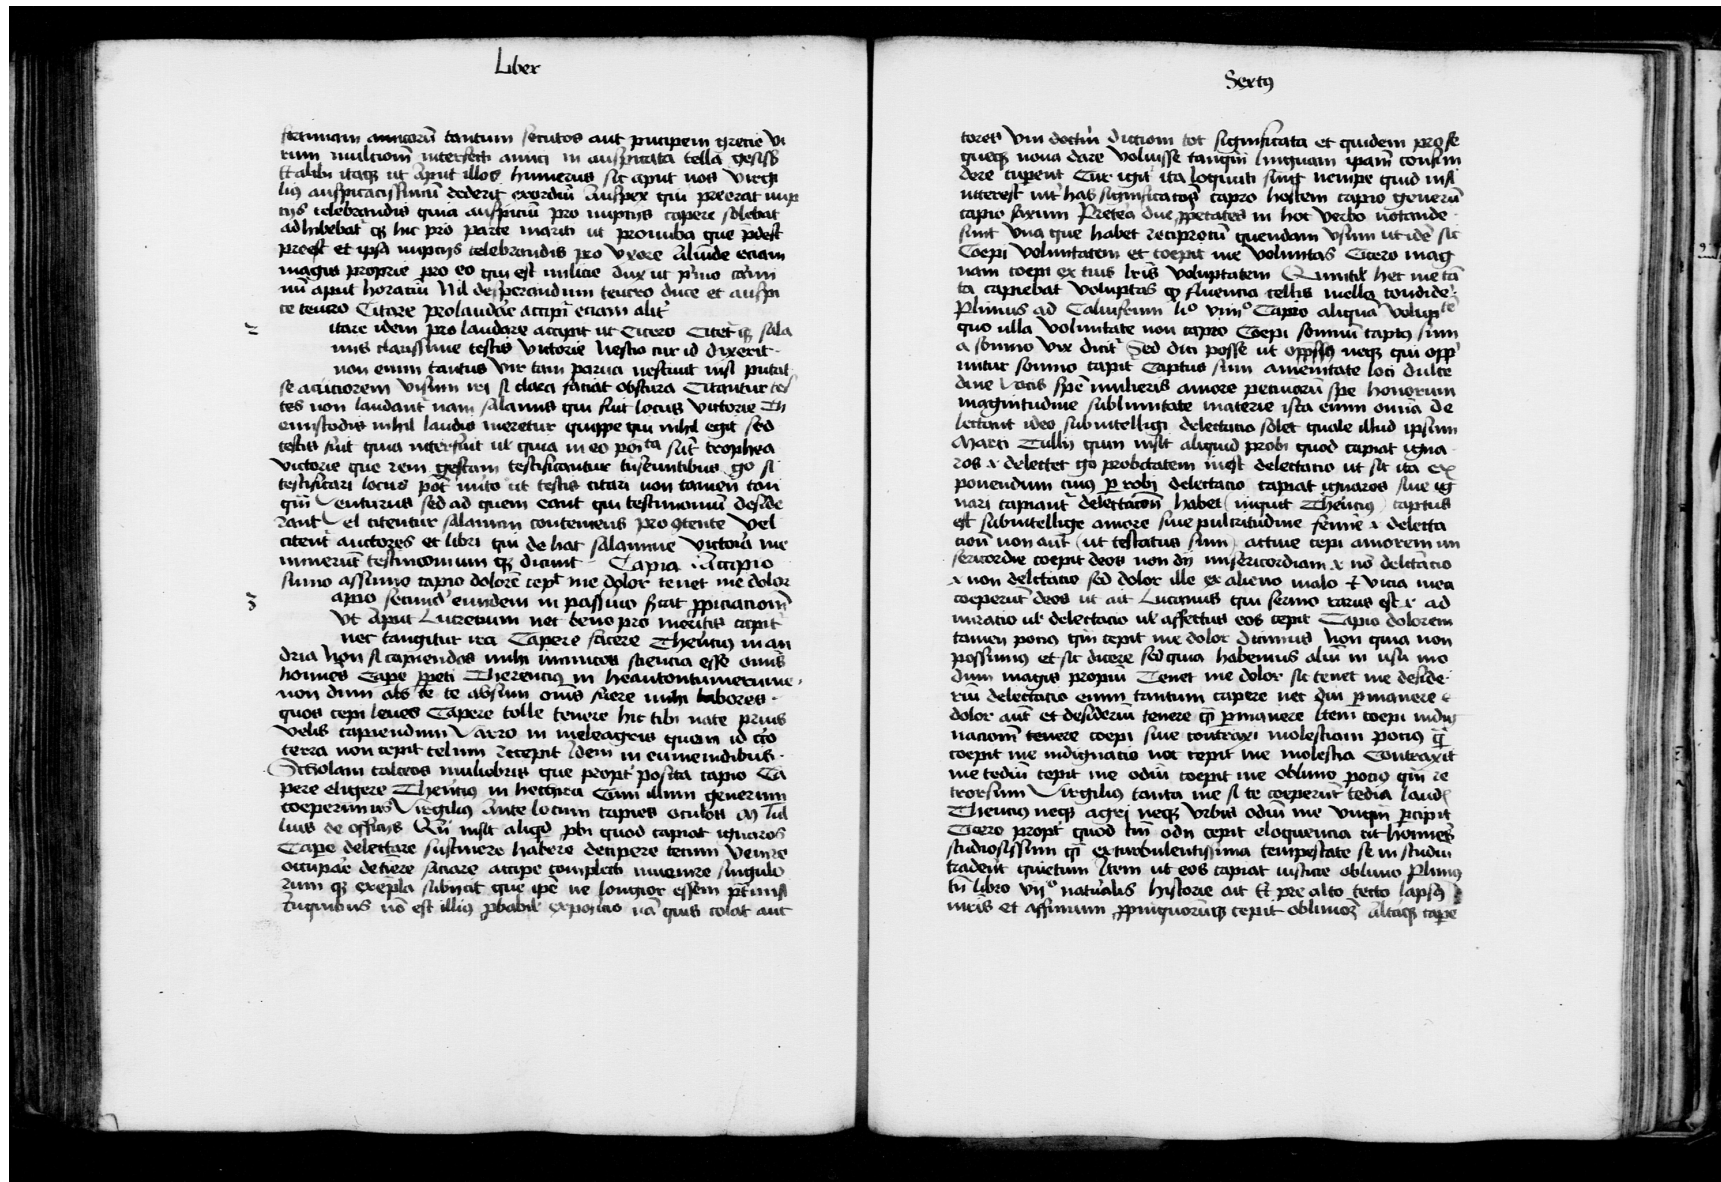 Liber
fortunam amicorū tantum secutos aut principem grecie vi
rum multorum interfecti amici in auspicata bella gessiss
Et alibi itaq; ut aput illos humerus sic aput nos virgi
liꝰ auspicacissimū dederit exordiū Auspex qui preerat nup
cijs celebrandis quia auspiciū pro nuptijs capere solebat
adhibebat q; hic pro parte mariti ut pronuba que pdest
preest et ipsa nuptijs celebrandis pro vxore Aliunde eciam
magis proprie pro eo qui est milicie dux ut pimo carmi
nū aput horatiū Nil desperandum teucro duce et auspi
ce teucro Citare prolaudare accipi eciam alit
itare idem pro laudare accipit ut Cicero Citet q; sala
mis clarissime testis victorie Nestio cur id dixerit
non enim tantus vir tam parua nestiuit nisi putat
se acuciorem visum iri si clara faciat obscura Citantur tes
tes non laudant nam salamis qui fuit locus victorie Th
emistodis nihil laudis meretur quippe qui nihil egit sed
testis fuit quia interfuit ut quia in eo poita sūt trophea
victorie que rem gestam testificantur tuseuntibus go si
testificari locus pot inuito ut testis citari non tamen tan
qm venturus sed ad quem eant qui testimoniū deside
rant vel citentur salamim contemens pro 9tente vel
citent auctores et libri qui de hac salamine victoria me
minerūt testimonium q; dicunt Capia Accipio
sumo assumo capio dolorē cepit me dolor tenet me dolor
apio secund eundem in passiuo sitat ppiciacionē
ut Aput Lucretium nec bene pro meritis capit
nec tangitur ira Capere facere Therencius in an
dria Non si capiendos mihi inimicos sciencia esse omis
homines Cape ppeti Therencius in heautontumerume
non dum abs te te absum omis fuere mihi labores
quos cepi leues Capere tolle tenere hic tibi nate prius
velis capiendum Varro in meleagris quem id cito
terra non cepit celum recepit Idem in eumenidibus
Scholam calceos muliebris que propt posita capio Ca
pere eligere Therencius in hechira Cum illum generum
coeperimus Virgilius Ante locum capies oculos M Tul
lius de officijs Qm nisit aliqd pbi quod capiat ignaros
Capere delectare sustinere habere decipere tecum venire
occupare detinere saciare accipe complecti inuenire singulo
rum q; exempla subiicit que ipse ne longior essem ptimisi
nō est illius pbabil exposicio nā quis colat aut
Sextꝰ
tores vm doctum dictiom tot significata et quidem prose
queq; noua dare voluisse tanqm linguam ipam confun
dere cuperent Cur igit ita loquuti sunt nempe quid nisi
interest int has significatos capro hostem capio generū
capio saxum Preterea due ppetates in hoc verbo notande
sunt vna que habet reciprocū quendam vsum ut idē sit
Coepi voluntatem et coepit me voluntas Cicero mag
nam coepi ex tuis lris voluptatem Quintil hec me tā
ta capiebat voluptas q fluencia cellis mella condide
Plinius ad Caluisium lio viiio Capio aliquā volupte
quo ulla voluntate non capro Coepi somnū captus sum
a somno vix dicit Sed dici posse ut oppssus neq; qui opp
mitur somno capit Captus sum amenitate loci dulce
dine vocis spē mulieris amore pecuniarū spe honorum
magnitudine sublimitate materie ista enim omnia de
lectant ideo subintelligi delectacio solet quale illud ipsum
Marci Tullij quin nisit aliquid probi quod capiat igna
ros x delectet go probitatem inest delectacio ut sit ita ex
ponendum cuius p robi delectacio capiat ignaros siue ig
nari capiant delectacōn habet inquit Therencius captus
est subintellige amore siue pulcritudine femine x delecta
cion non aut (ut testatus sum) actiue cepi amorem mi
sericordie coepit deos non dij misericordiam x nō delectacio
x non delectacio sed dolor ille ex alieno malo Et vicia mea
coeperunt deos ut ait Lucanus qui sermo rarus est x ad
miracio ut delectacio ut affectus eos cepit Capio dolorem
tamen pocius qm cepit me dolor dicimus Non quia non
possumus et sic dicere sed quia habemus aliū in usu mo
dum magis propriū Tenet me dolor sic tenet me deside
riū delectacio enim tantum capere nec diu pmanere
dolor aut et desideriū tenere q pmanere Item coepi indig
nacionē tenere coepi siue contraxi molestiam pocius q
coepit me indignacio nec cepit me molestia Contraxit
me tediū cepit me odiū coepit me obliuio pocius qm re
trorsum Virgilius tanta me si te coeperūt tedia laud
Therencius neq; agri neq; vrbis odiū me vnqm pcipit
Cicero propt quod tm odn cepit eloquencia tit homines
studiosissim q exturbulentissima tempestate se in studiū
tradent quietum Item ut eos capiat iusticie obliuio Plinius
tn libro viio naturalis historie ait Et pre alto tecto lapsus
mris et affinium ppinquorumq; cepit obliuioz Altaq; cape